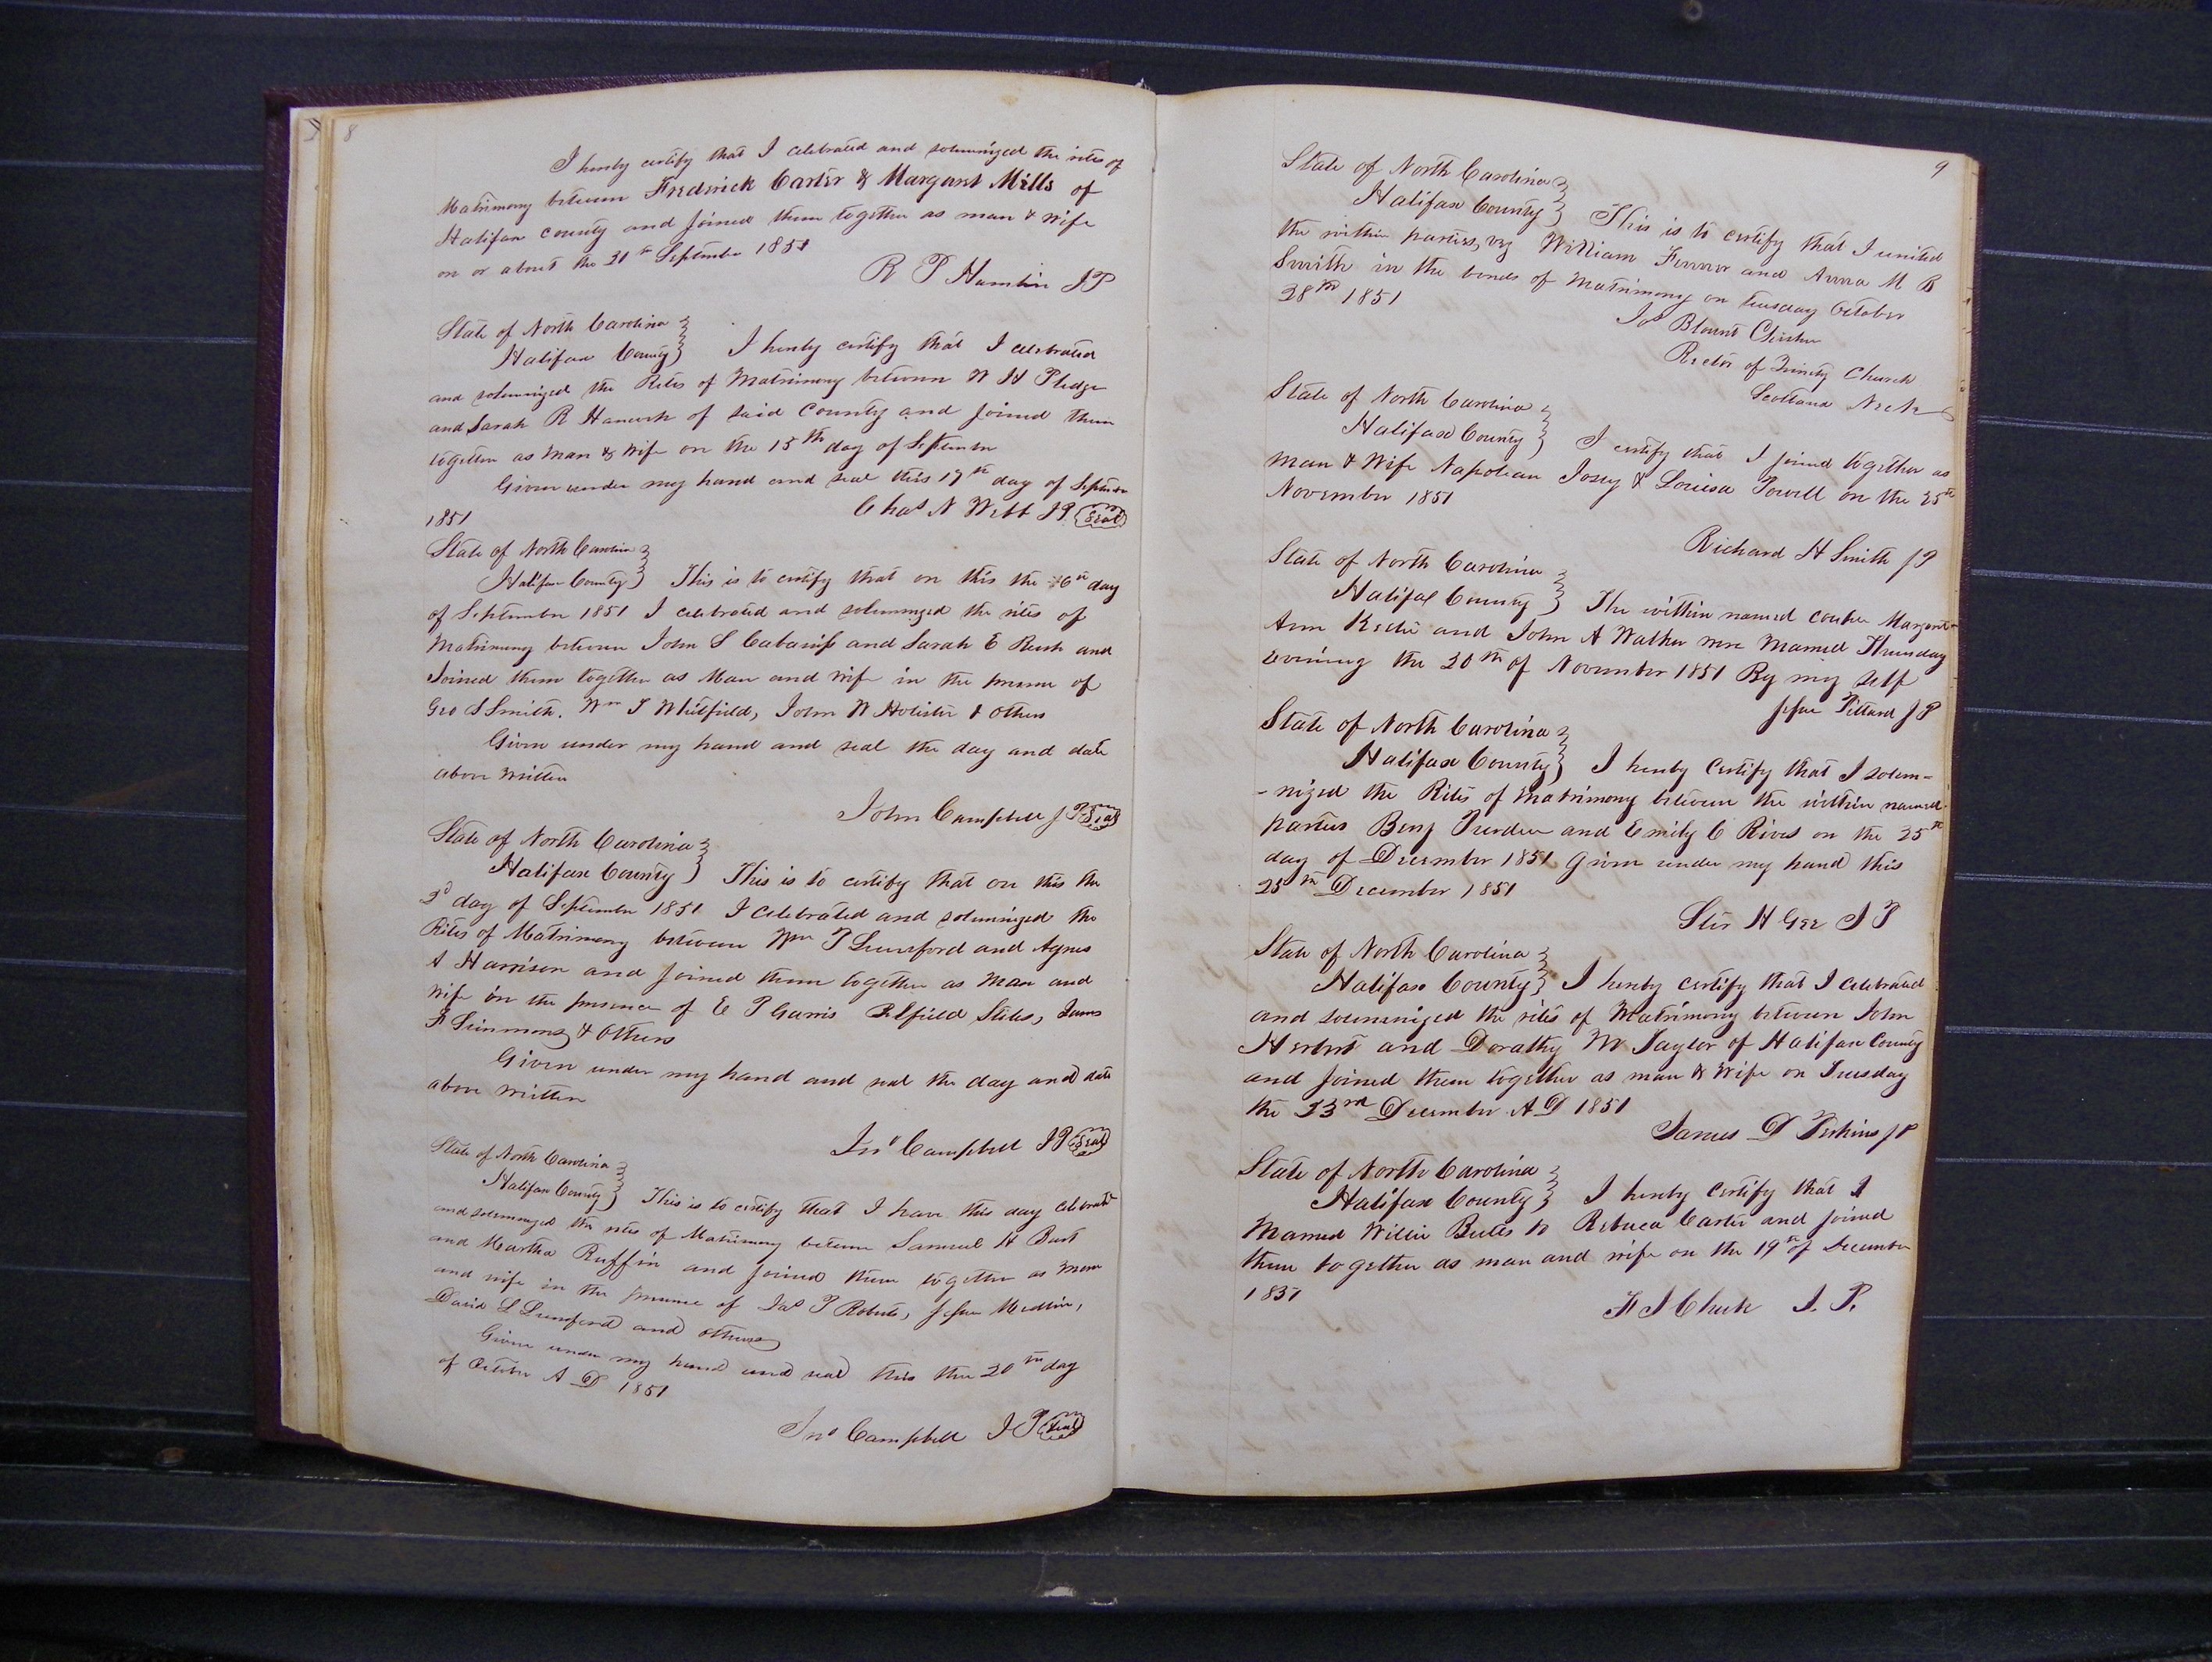 8
I hereby certify that I celebrated and solemnized the rites of
Matrimony between Frederick Carter & Margaret Mills of
Halifax county and joined them together as man & wife
on or about the 21st September 1851
R P Hamlin JP
State of North Carolina
Halifax County I hereby certify that I celebrated
and solemnized the Rites of Matrimony between W H Pledge
and Sarah R of said County and joined them
together as man & wife on the 15th day of September
Given under my hand and seal this 17th day of September
1851 Chas N Webb JP Seal
State of North Carolina
Halifax County This is to certify that on this the 16th day
of September 1851 I celebrated and solemnized the rites of
Matrimony between John S Cabaniss and Sarah E Rush and
Joined them together as Man and wife in the presence of
Geo S Smith, Wm T Whitfield, John W Holister & others
Given under my hand and seal the day and date
above written
John Campbell JP Seal
State of North Carolina
Halifax County This is to certify that on this the
2d day of September 1851 I celebrated and solemnized the
Rites of Matrimony between Wm P Lunsford and Agnes
A Harrison and joined them together as Man and
wife in the presence of E P Garris Belfield Stiles, James
F Simmons & Others
Given under my hand and seal the day and date
above written
Jno Campbell JP Seal
State of North Carolina
Halifax County This is to certify that I have this day celebrated
and solemnized the rites of Matrimony between Samuel H Burt
and Martha Ruffin and joined them together as Man
and wife in the presence of Jas P Roberts, Jesse Medlin,
David L Lunsford and others
Given under my hand and seal this the 20th day
of October A D 1851
Jno Campbell JP Seal
9
State of North Carolina
Halifax County This is to certify that I united
the within parties, viz William Ferrier and Anna M B
Smith in the bonds of Matrimony on tuesday October
28th 1851
Jos Blount Cheshire
Rector of Trinity Church
Scotland Neck
State of North Carolina
Halifax County I certify that I joined together as
man & Wife Napolean Josey & Louisa Powell on the 25th
November 1851
Richard H Smith JP
State of North Carolina
Halifax County The within named couple Margaret
Ann Keeter and John A Walker were Married Thursday
evening the 20th of November 1851 By my self
Jesse Pittard JP
State of North Carolina
Halifax County I hereby Certify that I solem-
-nized the Rites of Matrimony between the within named
parties Benj Purdue and Emily C Rives on the 25th
day of December 1851 Given under my hand this
25th December 1851
Ster H Gee JP
State of North Carolina
Halifax County I hereby certify that I celebrated
and solemnized the rites of Matrimony between John
Herbert and Dorathy M Taylor of Halifax County
and joined them together as man & Wife on Tuesday
the 23rd December A D 1851
James D Perkins JP
State of North Carolina
Halifax County I hereby Certify that I
Married Willie Butts to Rebecca Carter and joined
them together as man and wife on the 19th of December
1851
F J Cheek J. P.